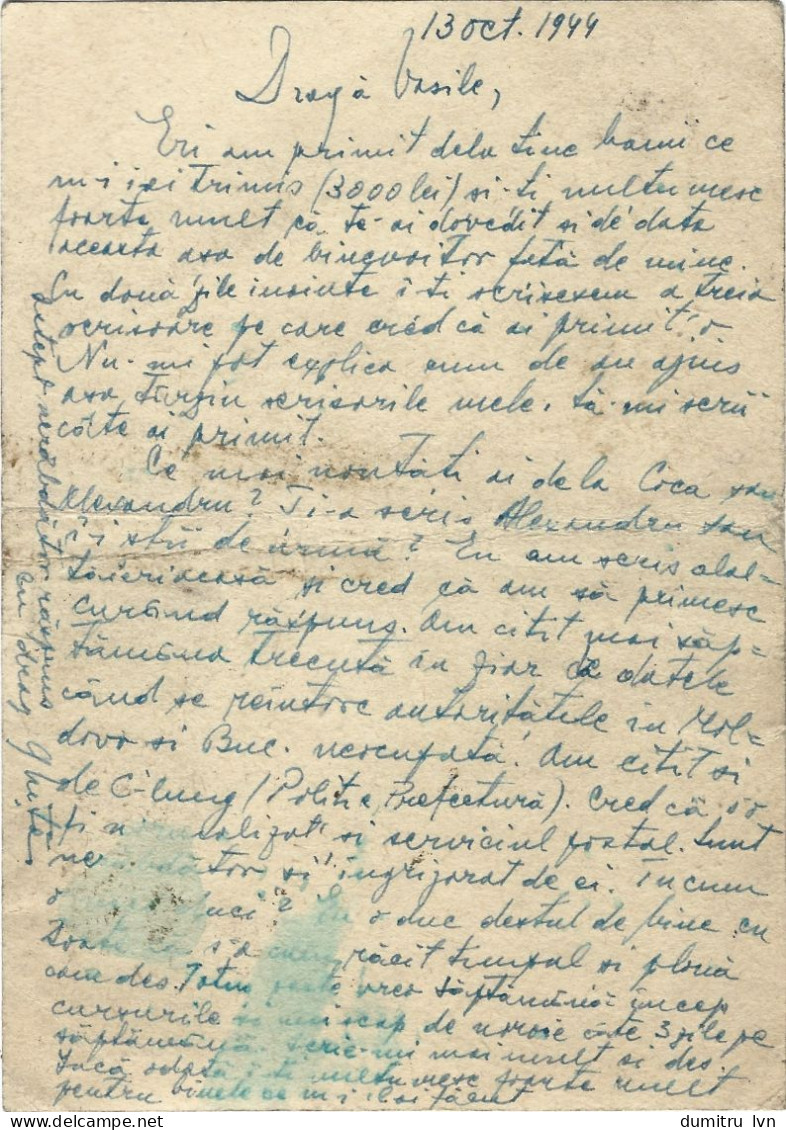 13 oct. 1944
Dragă Vasile,
Eri am primit dela tine banii ce
m-i i-ai trimis (3000 lei) si-ti multumesc
foarte mult că te-ai dovedit si de data
aceasta asa de binevoitor fată de mine.
Cu două zile inainte i-ti scrisesem a treia
scrisoare pe care cred că ai primit-o.
Nu-mi pot explica cum de au ajuns
asa târziu scrisorile mele. Să-mi scrii
câte ai primit.
Ce mai noutăti ai dela Coca sau
Alexandru? Ti-a scris Alexandru sau
i-i stii de urmă? Eu am scris alal-
tăieri acasă si cred că am să primesc
curând răspuns. Am citit mai săp-
tămâna trecută in ziar ca datele
când se reîntorc autoritătile in Mol-
dova si Buc. neocupată. Am citit si
de C-lung (Politie, Prefectură). Cred că s-o
fi normalizat si serviciul postal. Sunt
nerăbdător si ingrijorat de ei. Tu cum
o duci? Eu o duc destul de bine cu
toate că s-a cam răcit timpul si plouă
cam des. Totusi peste vreo săptămână incep
cursurile si mi scap de noroie câte 3 zile pe
săptămână. Scrie-mi mai mult si des.
Incă odată i-ti multumesc foarte mult
pentru binele ce m-i l-ai făcut
Astept nerăbdător răspuns
cu drag Ghită
dumitru lvn